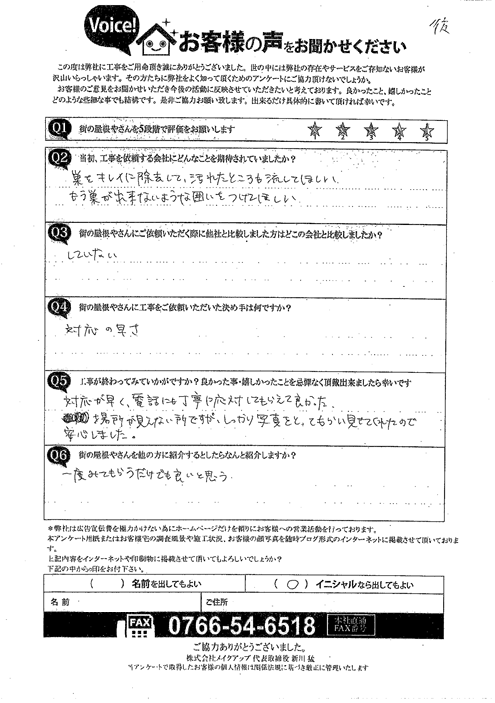 後
Voice!
お客様の声をお聞かせください
この度は弊社に工事をご用命頂き誠にありがとうございました。世の中には弊社の存在やサービスをご存知ないお客様が
沢山いらっしゃいます。その方たちに弊社をよく知って頂くためのアンケートにご協力頂けないでしょうか。
お客様のご意見をお聞かせいただき今後の活動に反映させていただきたいと考えております。良かったこと、嬉しかったこと
どのような些細な事でも結構です。是非ご協力お願い致します。出来るだけ具体的に書いて頂ければ幸いです。
Q1 街の屋根やさんを5段階で評価をお願いします
1 2 3 4 5
Q2 当初、工事を依頼する会社にどんなことを期待されていましたか?
巣をキレイに除去して、汚れたところも流してほしい、
もう巣が出来ないような囲いをつけてほしい
Q3 街の屋根やさんにご依頼いただく際に他社と比較しました方はどこの会社と比較しましたか?
していない
Q4 街の屋根やさんに工事をご依頼いただいた決め手は何ですか?
対応の早さ
Q5 工事が終わってみていかがですか?良かった事・嬉しかったことを忌憚なく頂戴出来ましたら幸いです
対応が早く、電話にも丁寧に応対してもらえて良かった
場所が見えない所ですが、しっかり写真をとってもらい見せてくれたので
安心しました。
Q6 街の屋根やさんを他の方に紹介するとしたらなんと紹介しますか?
一度みてもらうだけでも良いと思う
*弊社は広告宣伝費を極力かけない為にホームページだけを頼りにお客様への営業活動を行っております。
本アンケート用紙またはお客様宅の調査風景や施工状況、お客様の顔写真を随時ブログ形式のインターネットに掲載させて頂いておりま
す。
上記内容をインターネットや印刷物に掲載させて頂いてもよろしいでしょうか?
下記の中から○印をお付下さい。
( ) 名前を出してもよい
( ○ ) イニシャルなら出してもよい
名 前
ご住所
FAX 0766-54-6518 本社直通 FAX番号
ご協力ありがとうございました。
株式会社メイクアップ 代表取締役 新川 猛
*アンケートで取得したお客様の個人情報は関係法規に基づき厳正に管理いたします